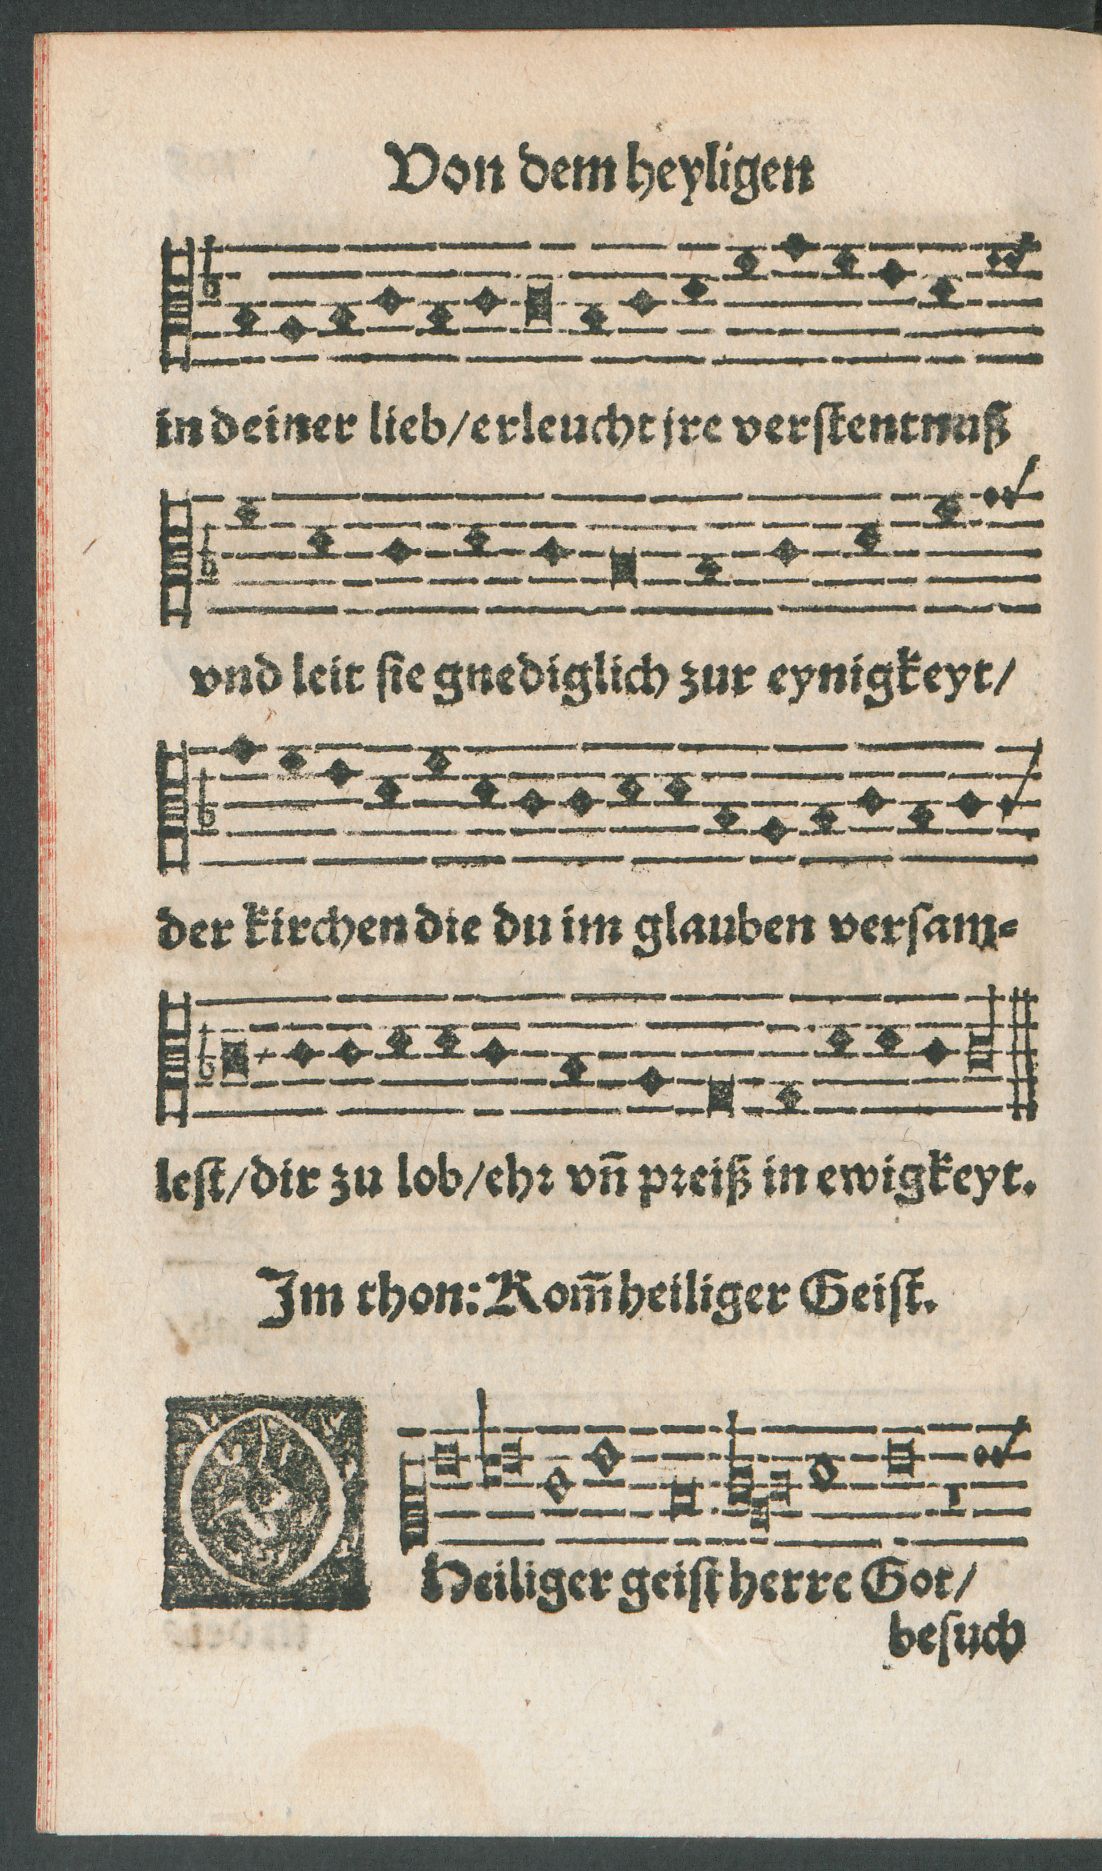 Von dem heyligen
in deiner lieb/erleucht jre verstentnuß
vnd leit sie gnediglich zur eynigkeyt/
der kirchen die du im glauben versam⸗
lest/dir zu lob/ehr vñ preiß in ewigkeyt.
Im thon: Kom̄ heiliger Geist.
O Heiliger geist herre Got/
besuch